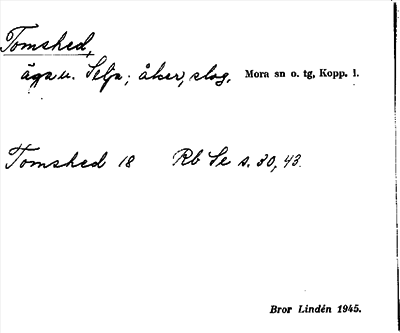 Tomshed,
ägau. Selja; åker, slog. Mora sn o. tg, Kopp. l.
Tomshed 18 Rb Se s. 30, 43.
Bror Lindén 1945.